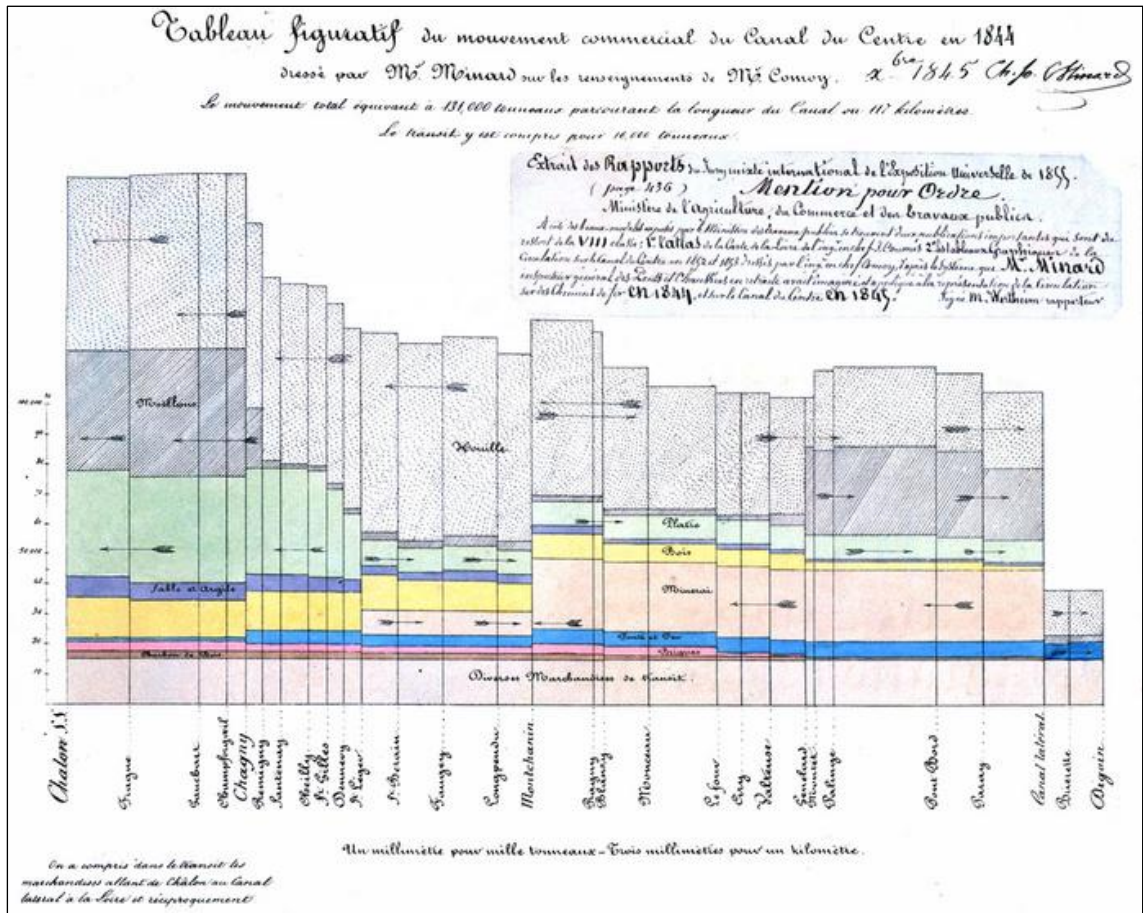 Tableau figuratif du mouvement commercial du Canal du Centre en 1844
dressé par Mr. Minard sur les renseignements de Mr. Comoy. xbre 1845 Ch. Jh. Minard
Le mouvement total équivaut à 131,000 tonneaux parcourant la longueur du Canal ou 117 kilomètres.
Le transit y est compris pour 16,000 tonneaux.
Extrait des Rapports du Jury mixte international de l'Exposition Universelle de 1855.
(page 436) Mention pour Ordre.
Ministère de l'Agriculture, du Commerce et des Travaux publics.
A côté des beaux modèles exposés par le Ministère des travaux publics se trouvent deux publications importantes qui sont du
ressort de la VIII classe: 1° l'atlas de la Carte de la Loire de l'ingr en chef 2° les tableaux Graphiques de la
Circulation sur le Canal du Centre en 1852 et 1853 dressés par l'ingr en chef Comoy, d'après le système que M. Minard
inspecteur général des Ponts et Chaussées en retraite avait imaginé et appliqué à la représentation de la Circulation
sur des Chemins de fer en 1844, et sur le Canal du Centre en 1845. Signé M. rapporteur
100,000
90
80
70
60
50,000
40
30
20
10
Moellons
Houille
Sable et Argile
Charbon de Bois
Platre
Bois
Minerai
Fonte et Fer
Diverses Marchandises de transit.
Chalon S.S
Fragne
Champforgeuil
Chagny
Remigny
Santenay
Cheilly
St Gilles
Dennevy
St Leger
St Berain
Longpendu
Montchanin
Ragny
Blanzy
Monceau
Ciry
Genelard
Palinge
Parray
Canal latéral
Digoin
Un millimètre pour mille tonneaux - Trois millimètres pour un kilomètre.
On a compris dans le transit les
marchandises allant de Châlon au Canal
latéral à la Loire et réciproquement